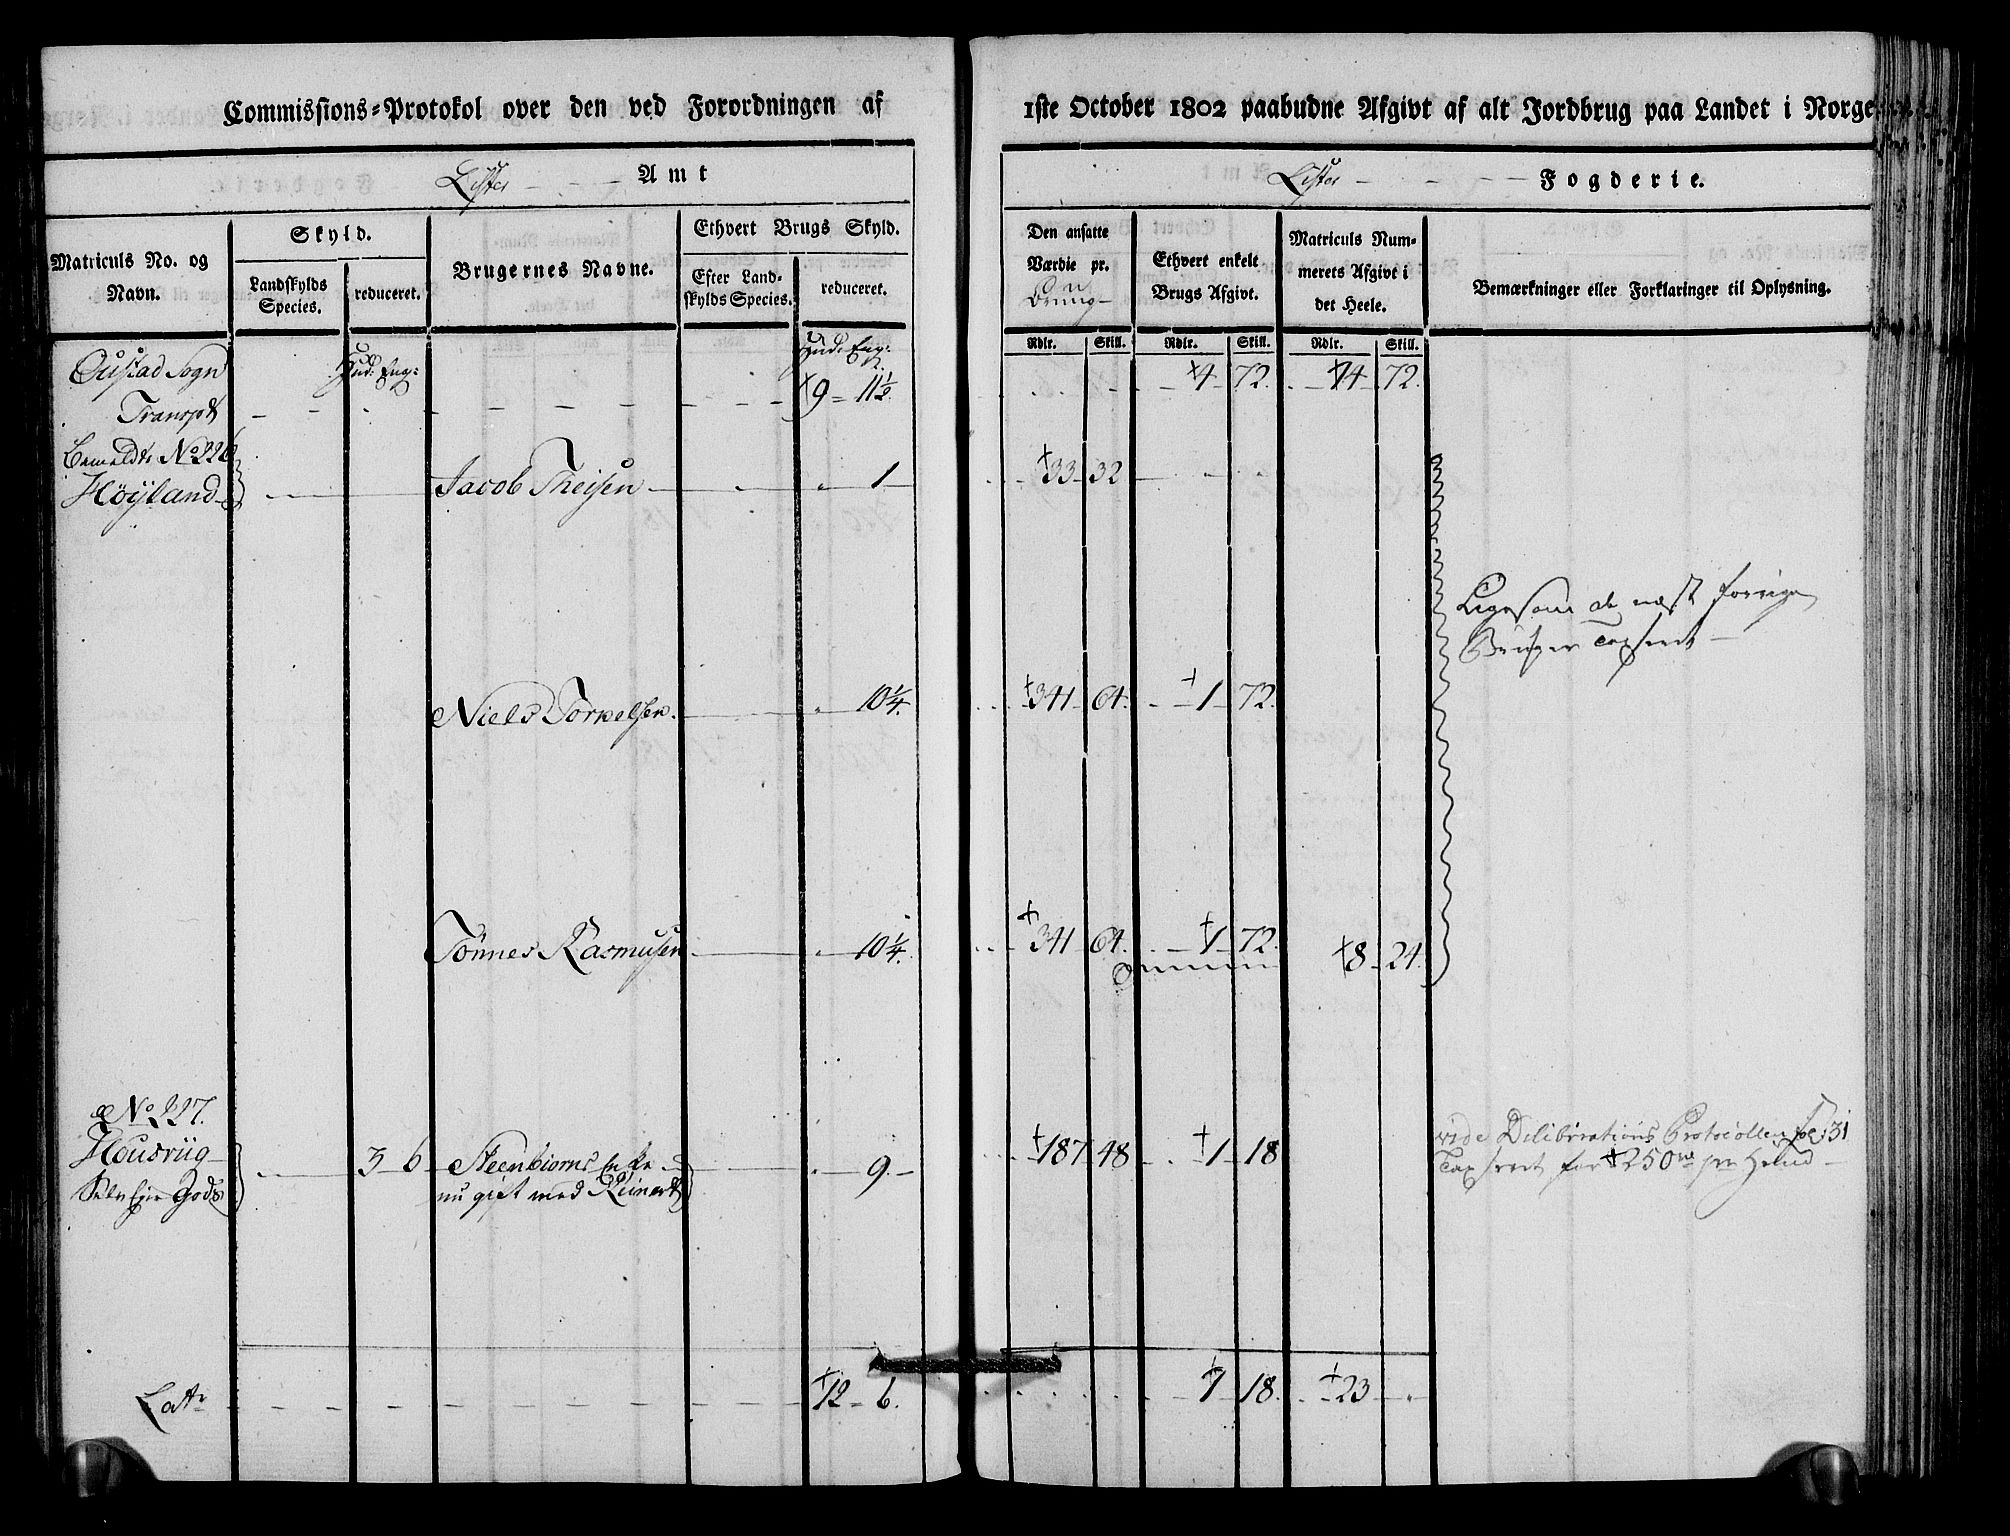 Commissions-Protokol over den ved Forordningen af
Lister Amt
Matriculs No. og Navn.
Skyld.
Landskylds Species.
reduceret.
Brugernes Navne.
Ethvert Brugs Skyld.
Efter Landskylds Species.
reduceret.
Hud. Eng:
Hud. Eng:
Sogn
Transpt 9 11½
No 226
Høyland Jacob Theisen 1
Niels Torkelsen 10¼
Tönnes Rasmusen 10¼
No 227.
Housrüg 3 6 Steenbiorns Enke 9
Selv Ejer Gods nu gift med Reinert
Lat 12 6
1ste October 1802 paabudne Afgivt af alt Jordbrug paa Landet i Norge.
Lister Fogderie.
Den ansatte Værdie pr.
Ethvert enkelt Brugs Afgivt.
Matriculs Nummerets Afgivt i det Heele.
Bemærkninger eller Forklaringer til Oplysning.
Rdlr. Skill. Rdlr. Skill. Rdlr. Skill.
4 72 14 72
33 32
Ligesom de næst forrige
Bruger Taxseret
341 64 1 72
341 64 1 72 8 24
187 48 1 18 vide Deliberations Protocollen fol: 31
Taxseret for 250 pr Hud
7 18 23